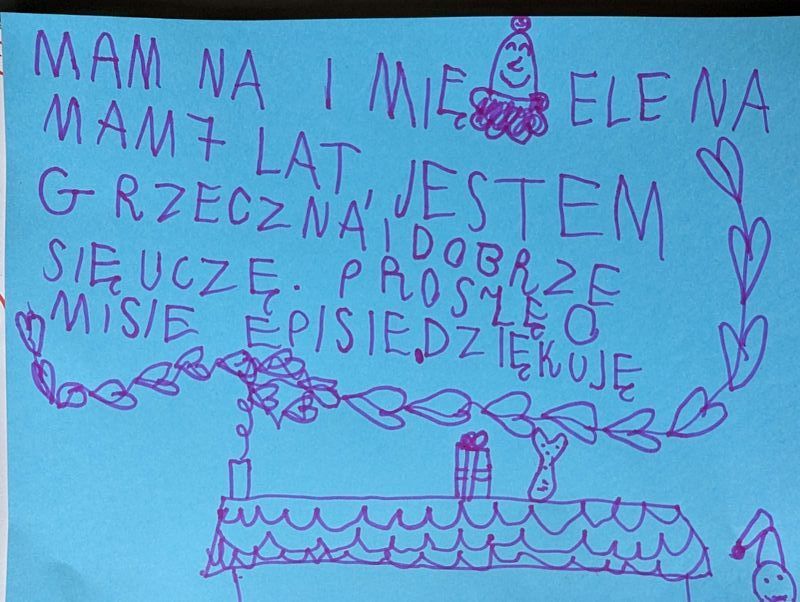 MAM NA IMIĘ ELENA
MAM 7 LAT, JESTEM
GRZECZNA I DOBRZE
SIĘ UCZĘ. PROSZĘ O
MISIE EPISIE. DZIĘKUJĘ